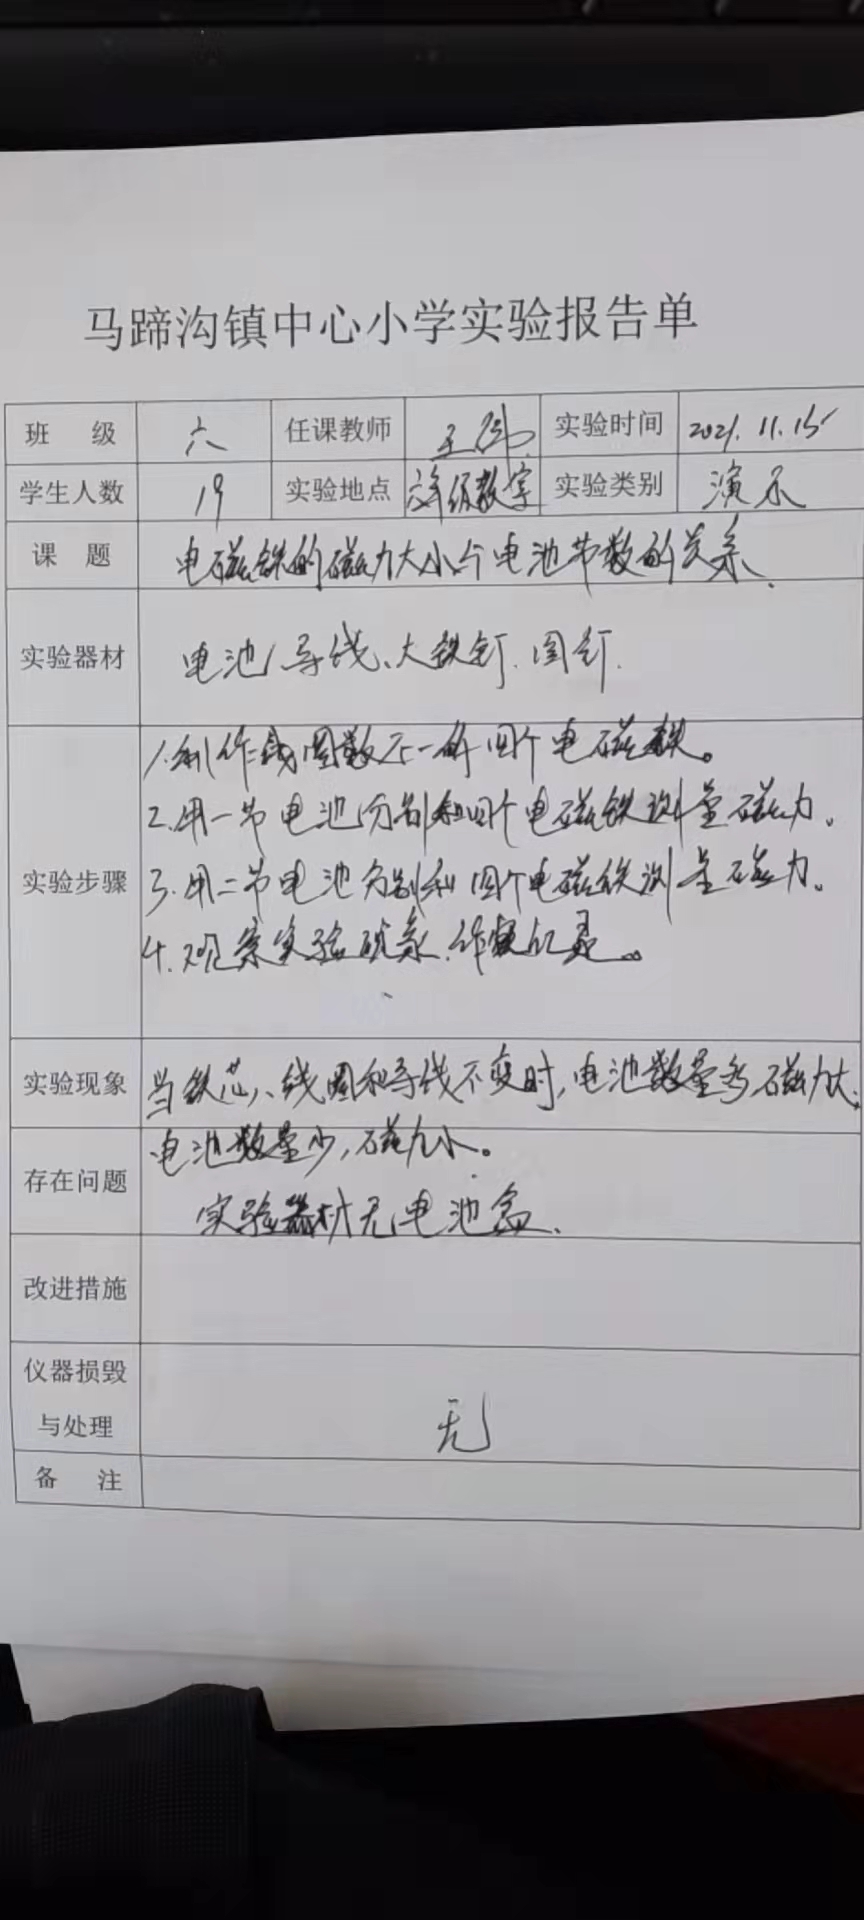 马蹄沟镇中心小学实验报告单
班 级 六 任课教师 王伟 实验时间 2021.11.15
学生人数 19 实验地点 六年级教室 实验类别 演示
课 题 电磁铁的磁力大小与电池节数的关系.
实验器材 电池、导线、大铁钉.图钉.
实验步骤
1.制作线圈数不一的四个电磁铁。
2.用一节电池分别和四个电磁铁测量磁力.
3.用二节电池分别和四个电磁铁测量磁力.
4.观察实验现象.作好记录。
实验现象 当铁芯、线圈和导线不变时,电池数量多,磁力大;
电池数量少,磁力小。
存在问题 实验器材无电池盒.
改进措施
仪器损毁
与处理 无
备 注